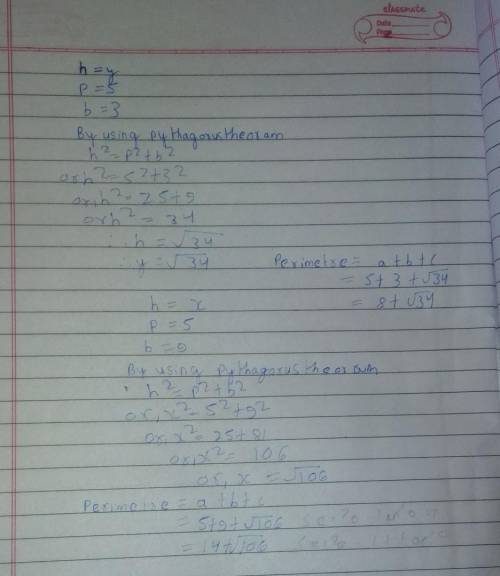 classmate
Date
Page
h = y
p = 5
b = 3
By using pythagorus theoram
h² = p² + b²
or h² = 5² + 3²
or, h² = 25 + 9
or h² = 34
∴ h = √34
∴ y = √34
Perimetre = a + b + c
= 5 + 3 + √34
= 8 + √34
h = x
p = 5
b = 9
By using pythagorus theoram
h² = p² + b²
or, x² = 5² + 9²
or, x² = 25 + 81
or, x² = 106
or, x = √106
Perimetre = a + b + c
= 5 + 9 + √106
= 14 + √106